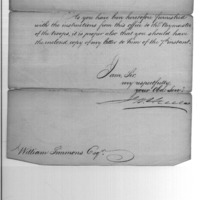 As you have been heretofore furnished
with the instructions from this office to the Paymaster
of the troops, it is proper also that you should have
the enclosed copy of my letter to him of the 7th instant.
I am, Sir
very respectfully
your Obt Servt
William Simmons Esqr.